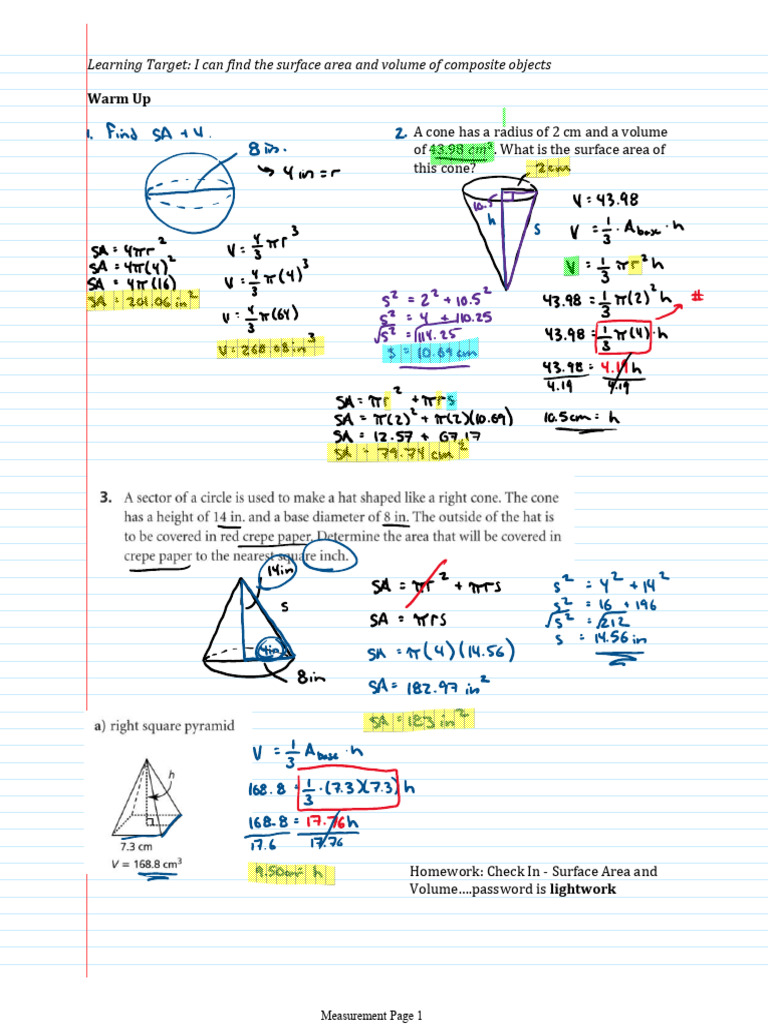 Learning Target: I can find the surface area and volume of composite objects
Warm Up
1. Find SA + V.
8 in.
↳ 4 in = r
SA = 4πr²
SA = 4π(4)²
SA = 4π(16)
SA = 201.06 in²
V = 4/3 πr³
V = 4/3 π(4)³
V = 4/3 π(64)
V = 268.08 in³
2. A cone has a radius of 2 cm and a volume
of 43.98 cm³. What is the surface area of
this cone?
2cm
10.5
h
s
V = 43.98
V = 1/3 · A base · h
V = 1/3 πr²h
43.98 = 1/3 π(2)²h
#
43.98 = 1/3 π(4)·h
43.98 = 4.19h
4.19 4.19
10.5cm = h
s² = 2² + 10.5²
s² = 4 + 110.25
√s² = √114.25
s = 10.69 cm
SA = πr² + πrs
SA = π(2)² + π(2)(10.69)
SA = 12.57 + 67.17
SA = 79.74 cm²
3. A sector of a circle is used to make a hat shaped like a right cone. The cone
has a height of 14 in. and a base diameter of 8 in. The outside of the hat is
to be covered in red crepe paper. Determine the area that will be covered in
crepe paper to the nearest square inch.
14in
s
4in
8in
SA = πr² + πrs
SA = πrs
SA = π(4)(14.56)
SA = 182.97 in²
SA = 183 in²
s² = 4² + 14²
s² = 16 + 196
√s² = √212
s = 14.56 in
a) right square pyramid
h
7.3 cm
V = 168.8 cm³
V = 1/3 A base · h
168.8 = 1/3 · (7.3)(7.3) h
168.8 = 17.76h
17.6 17.76
9.50cm = h
Homework: Check In - Surface Area and
Volume....password is lightwork
Measurement Page 1